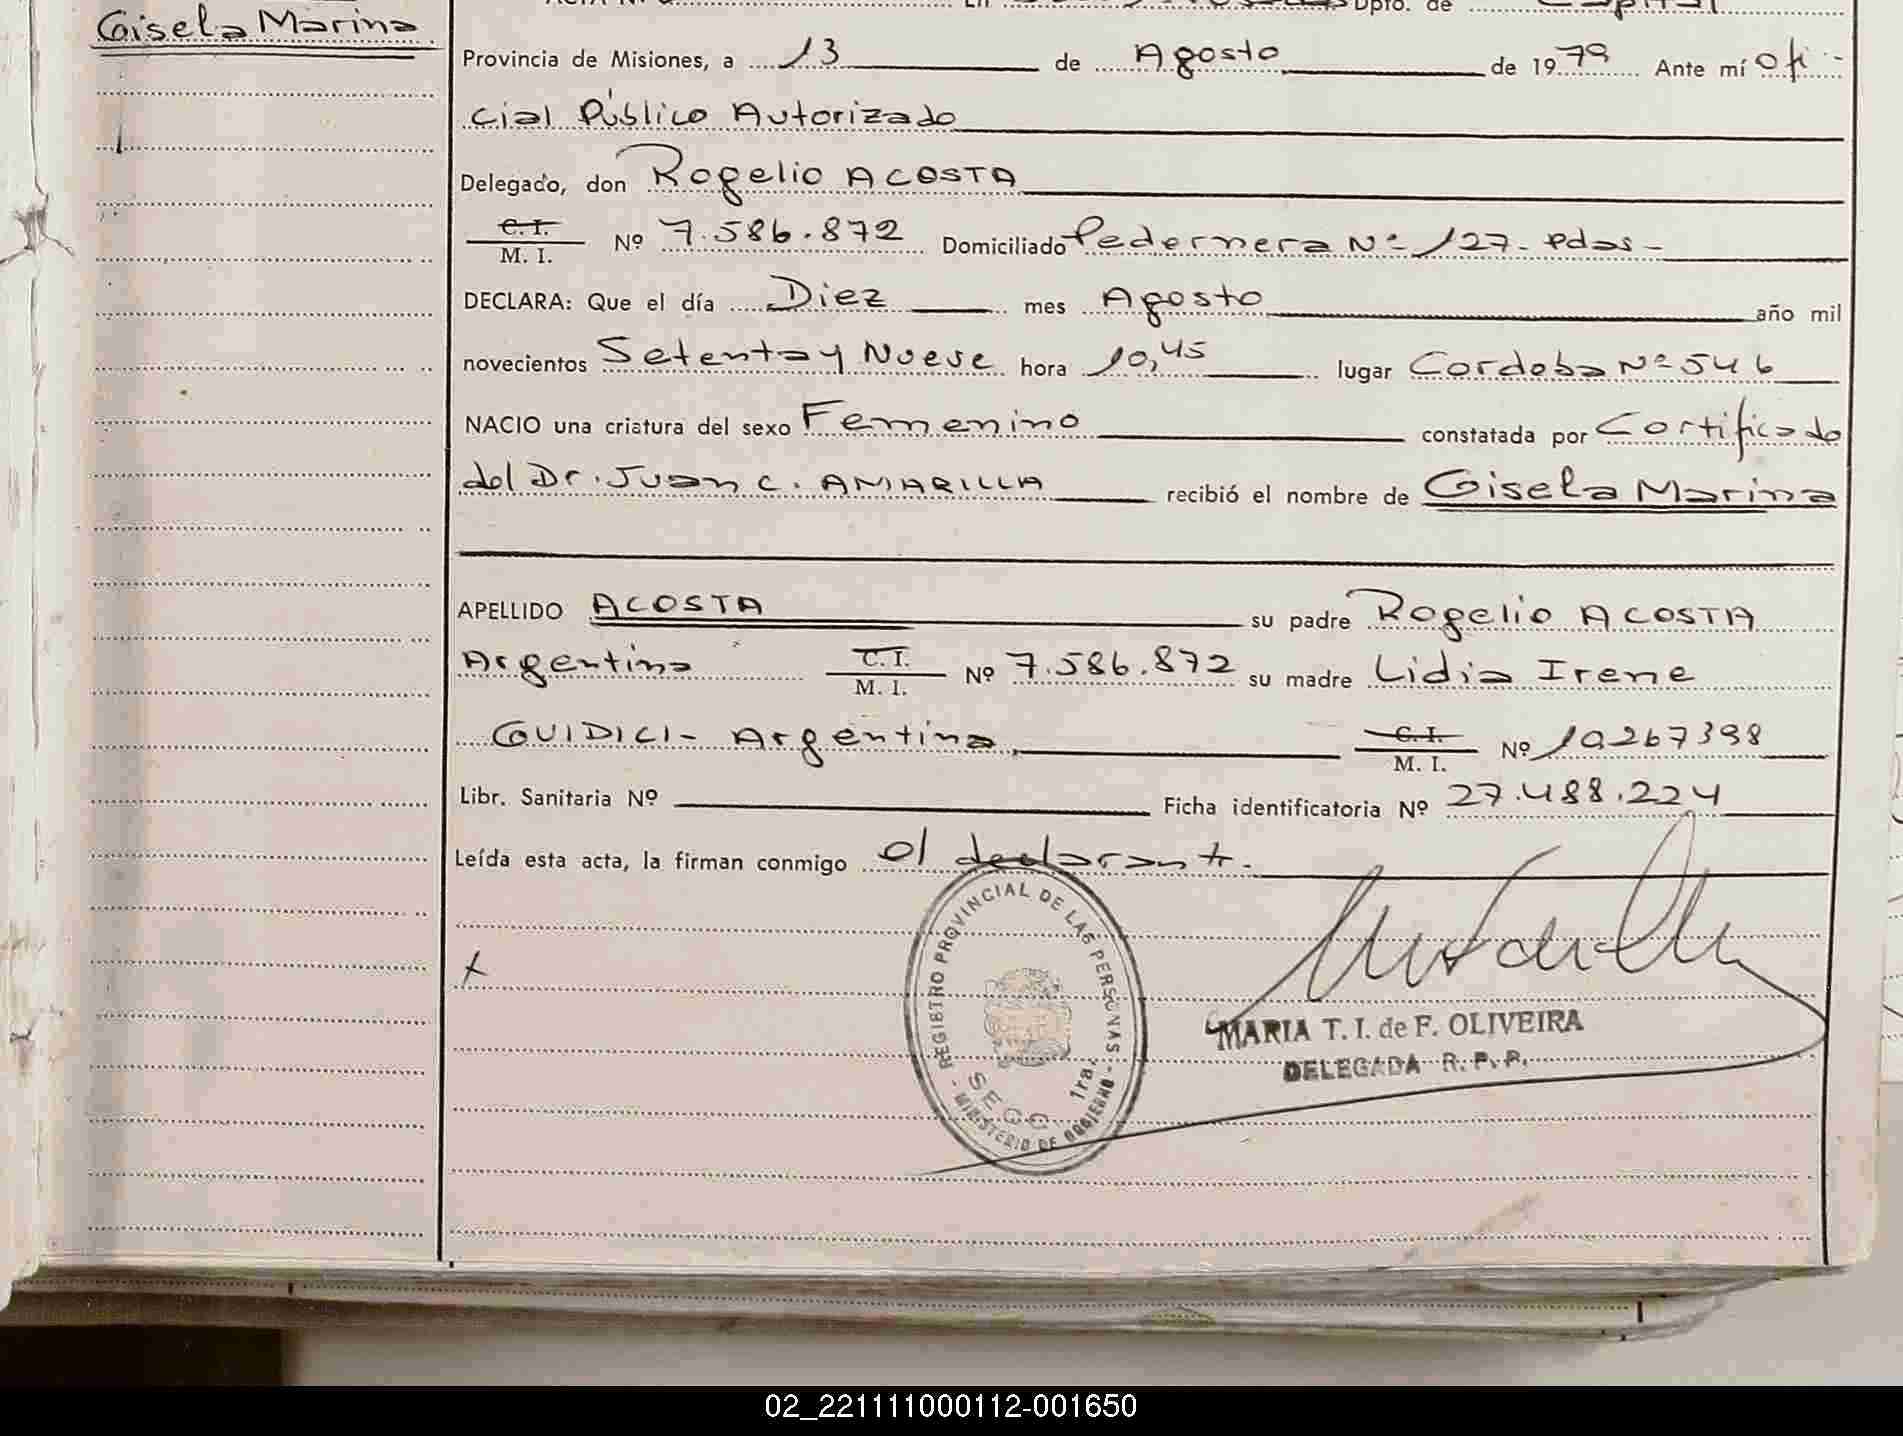 Gisela Marina
Dpto. de Capital
Provincia de Misiones, a 13 de Agosto de 1979 Ante mí Ofi-
cial Público Autorizado
Delegado, don Rogelio ACOSTA
C. I.
M. I. Nº 7.586.872 Domiciliado Pedernera Nº 127- Pdas-
DECLARA: Que el día Diez mes Agosto año mil
novecientos Setenta y Nueve hora 10,45 lugar Cordoba Nº 546
NACIO una criatura del sexo Femenino constatada por Certificado
del Dr. Juan C. AMARILLA recibió el nombre de Gisela Marina
APELLIDO ACOSTA su padre Rogelio ACOSTA
Argentino C. I.
M. I. Nº 7.586.872 su madre Lidia Irene
GUIDICI- Argentina C. I.
M. I. Nº 10.267398
Libr. Sanitaria Nº Ficha identificatoria Nº 27.488.224
Leída esta acta, la firman conmigo el declarante.
REGISTRO PROVINCIAL DE LAS PERSONAS
SECC 1ra.
MINISTERIO DE GOBIERNO
MARIA T. I. de F. OLIVEIRA
DELEGADA R. P. P.
02_221111000112-001650